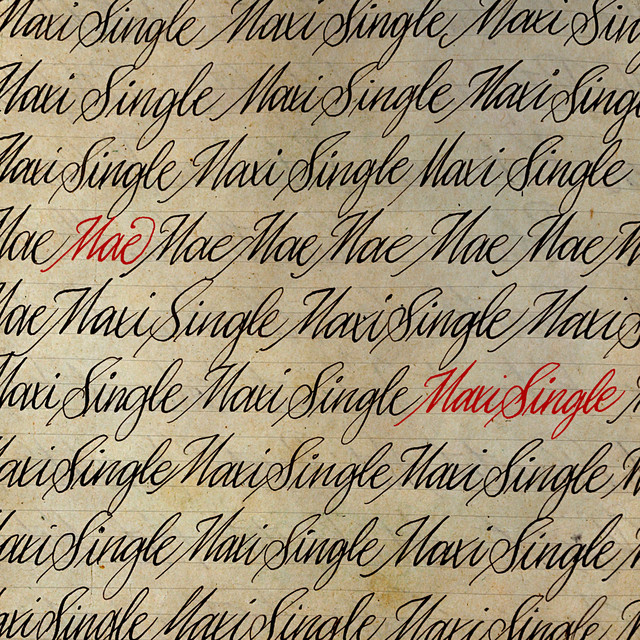 Maxi Single Maxi Single Maxi Sin
Maxi Single Maxi Single Maxi Sing
Maxi Single Maxi Single Maxi Single
Mae Mae Mae Mae Mae Mae Mae
Mae Maxi Single Maxi Single Maxi
Maxi Single Maxi Single Maxi Single
Maxi Single Maxi Single Maxi Single
Maxi Single Maxi Single Maxi Single
Maxi Single Maxi Single Maxi Single